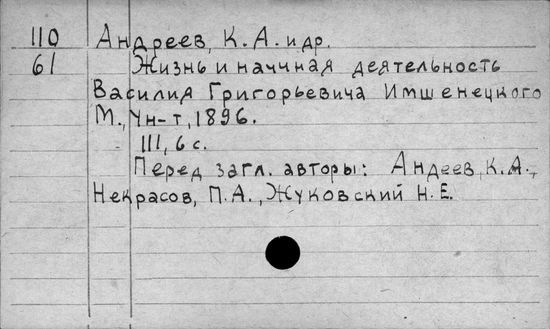 110 Андреев, К. А. и др.
61 Жизнь и наччная деятельность
Василия Григорьевича Имшенецкого
М., Ун-т, 1896.
III, 6 с.
Перед загл. авторы: Андеев, К. А.,
Некрасов, П. А., Жуковский Н. Е.